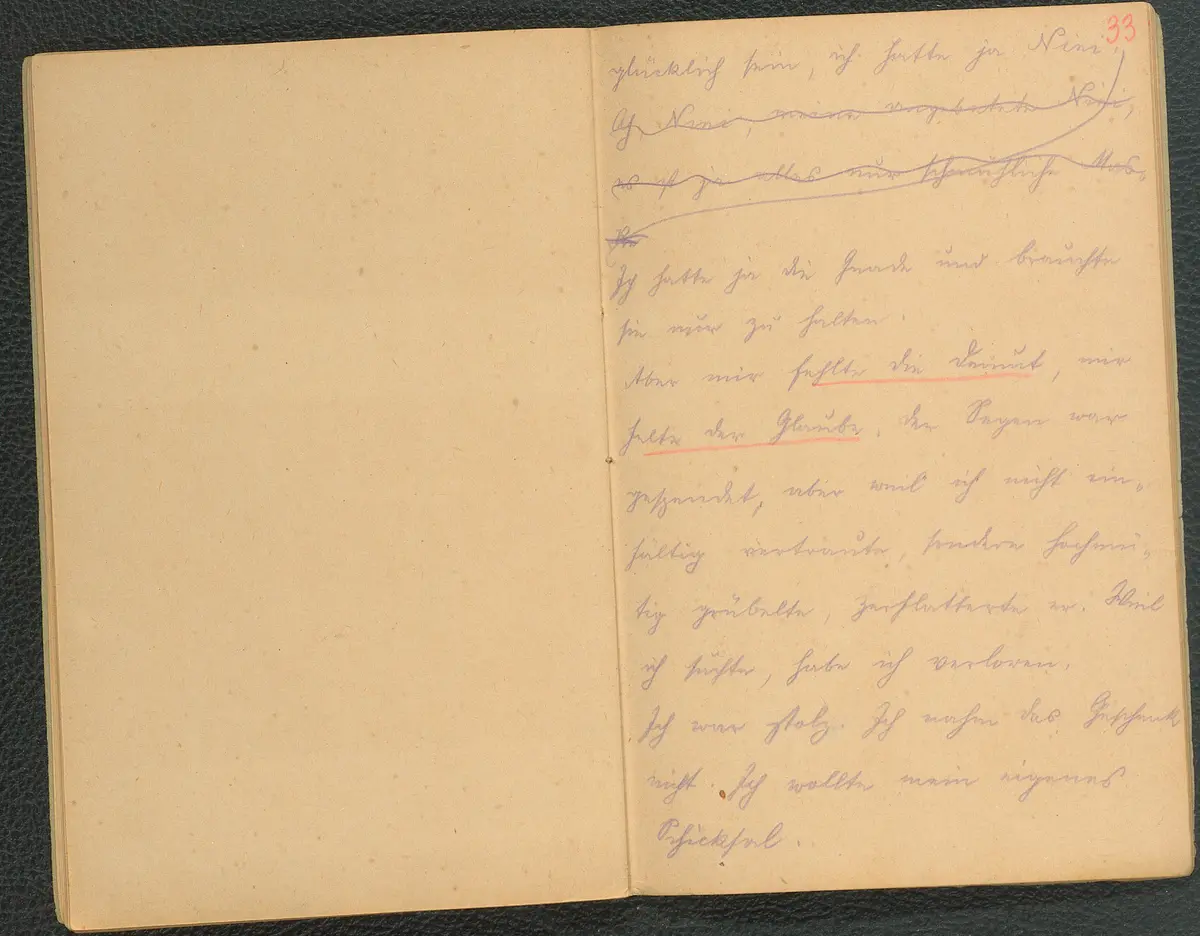 33
glücklich sein, ich hatte ja Nini.
Ach Nini, meine angebetete Nini,
es ist ja alles nur scheußliche Mas-
ke
Ich hatte ja die Gnade und brauchte
sie nur zu halten.
Aber mir fehlte die Demut, mir
felte der Glaube, der Segen war
gespendet, aber weil ich nicht ein-
fältig vertraute, sondern hochmü-
tig grübelte, zerflatterte er. Weil
ich suchte, habe ich verloren.
Ich war stolz. Ich nahm das Geschenk
nicht. Ich wollte mein eigenes
Schicksal.